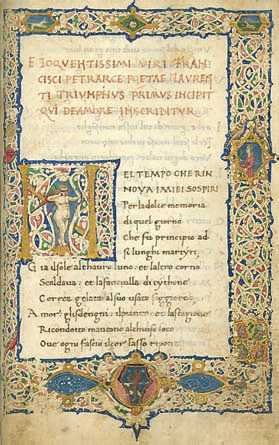 ELOQVENTISSIMI VIRI FRAN
CISCI PETRARCE POETAE LAVREN
TI TRIVMPHVS PRIMVS INCIPIT
QVI DE AMORE INSCRIBITVR
NEL TEMPO CHE RIN
NOVA I MIEI SOSPIRI
Per la dolce memoria
di quel giorno
Che fu principio ad
si lunghi martyri,
Gia il sole al thauro luno et laltro corno
Scaldaua: et la fanciulla di tythone
Correa gelata al suo usato soggiorno
Amor gli sdegni: il pianto et la stagione
Ricondotto maueano al chiuso loco
Oue ogni fascio il cor lasso ripone